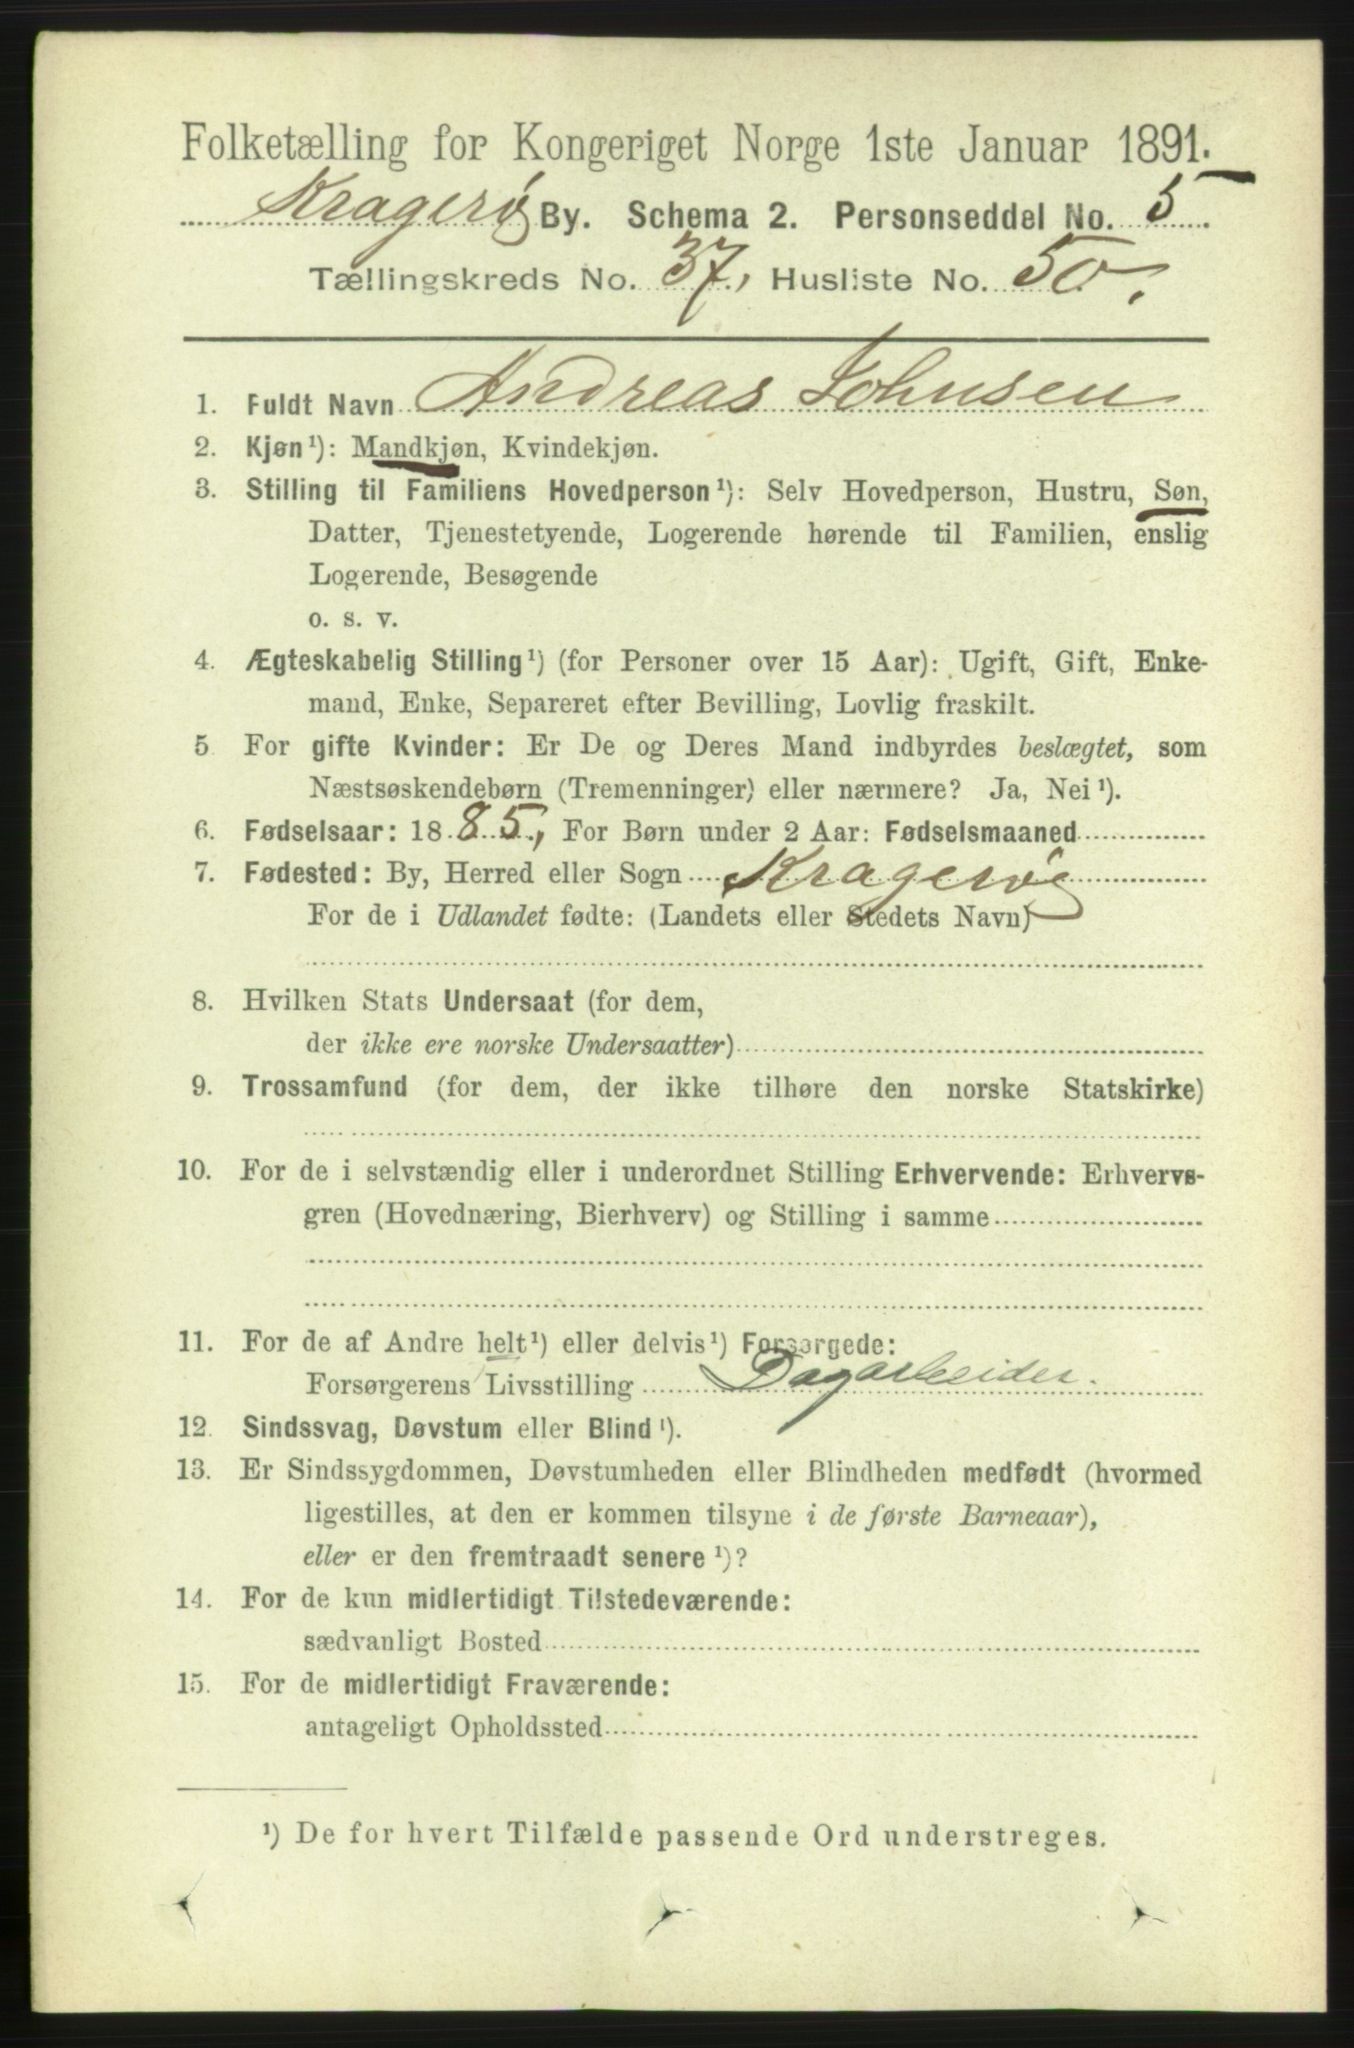 Folketælling for Kongeriget Norge 1ste Januar 1891.
Kragerø By. Schema 2. Personseddel No. 5.
Tællingskreds No. 37, Husliste No. 50.
1. Fuldt Navn Andreas Johnsen
2. Kjøn¹): Mandkjøn, Kvindekjøn.
3. Stilling til Familiens Hovedperson¹): Selv Hovedperson, Hustru, Søn,
Datter, Tjenestetyende, Logerende hørende til Familien, enslig
Logerende, Besøgende
o. s. v.
4. Ægteskabelig Stilling¹) (for Personer over 15 Aar): Ugift, Gift, Enke-
mand, Enke, Separeret efter Bevilling, Lovlig fraskilt.
5 For gifte Kvinder: Er De og Deres Mand indbyrdes beslægtet, som
Næstsøskendebørn (Tremenninger) eller nærmere? Ja, Nei¹).
6. Fødselsaar: 1885, For Børn under 2 Aar: Fødselsmaaned
7. Fødested: By, Herred eller Sogn Kragerø
For de i Udlandet fødte: (Landets eller Stedets Navn)
8. Hvilken Stats Undersaat (for dem,
der ikke ere norske Undersaatter)
9. Trossamfund (for dem, der ikke tilhøre den norske Statskirke)
10. For de i selvstændig eller i underordnet Stilling Erhvervende: Erhvervs-
gren (Hovednæring, Bierhverv) og Stilling i samme
11. For de af Andre helt¹) eller delvis¹) Forsørgede:
Forsørgerens Livsstilling Dagarbeider.
12. Sindssvag, Døvstum eller Blind¹).
13. Er Sindssygdommen, Døvstumheden eller Blindheden medfødt (hvormed
ligestilles, at den er kommen tilsyne i de første Barneaar),
eller er den fremtraadt senere¹)?
14. For de kun midlertidigt Tilstedeværende:
sædvanligt Bosted
15. For de midlertidigt Fraværende:
antageligt Opholdssted
¹) De for hvert Tilfælde passende Ord understreges.